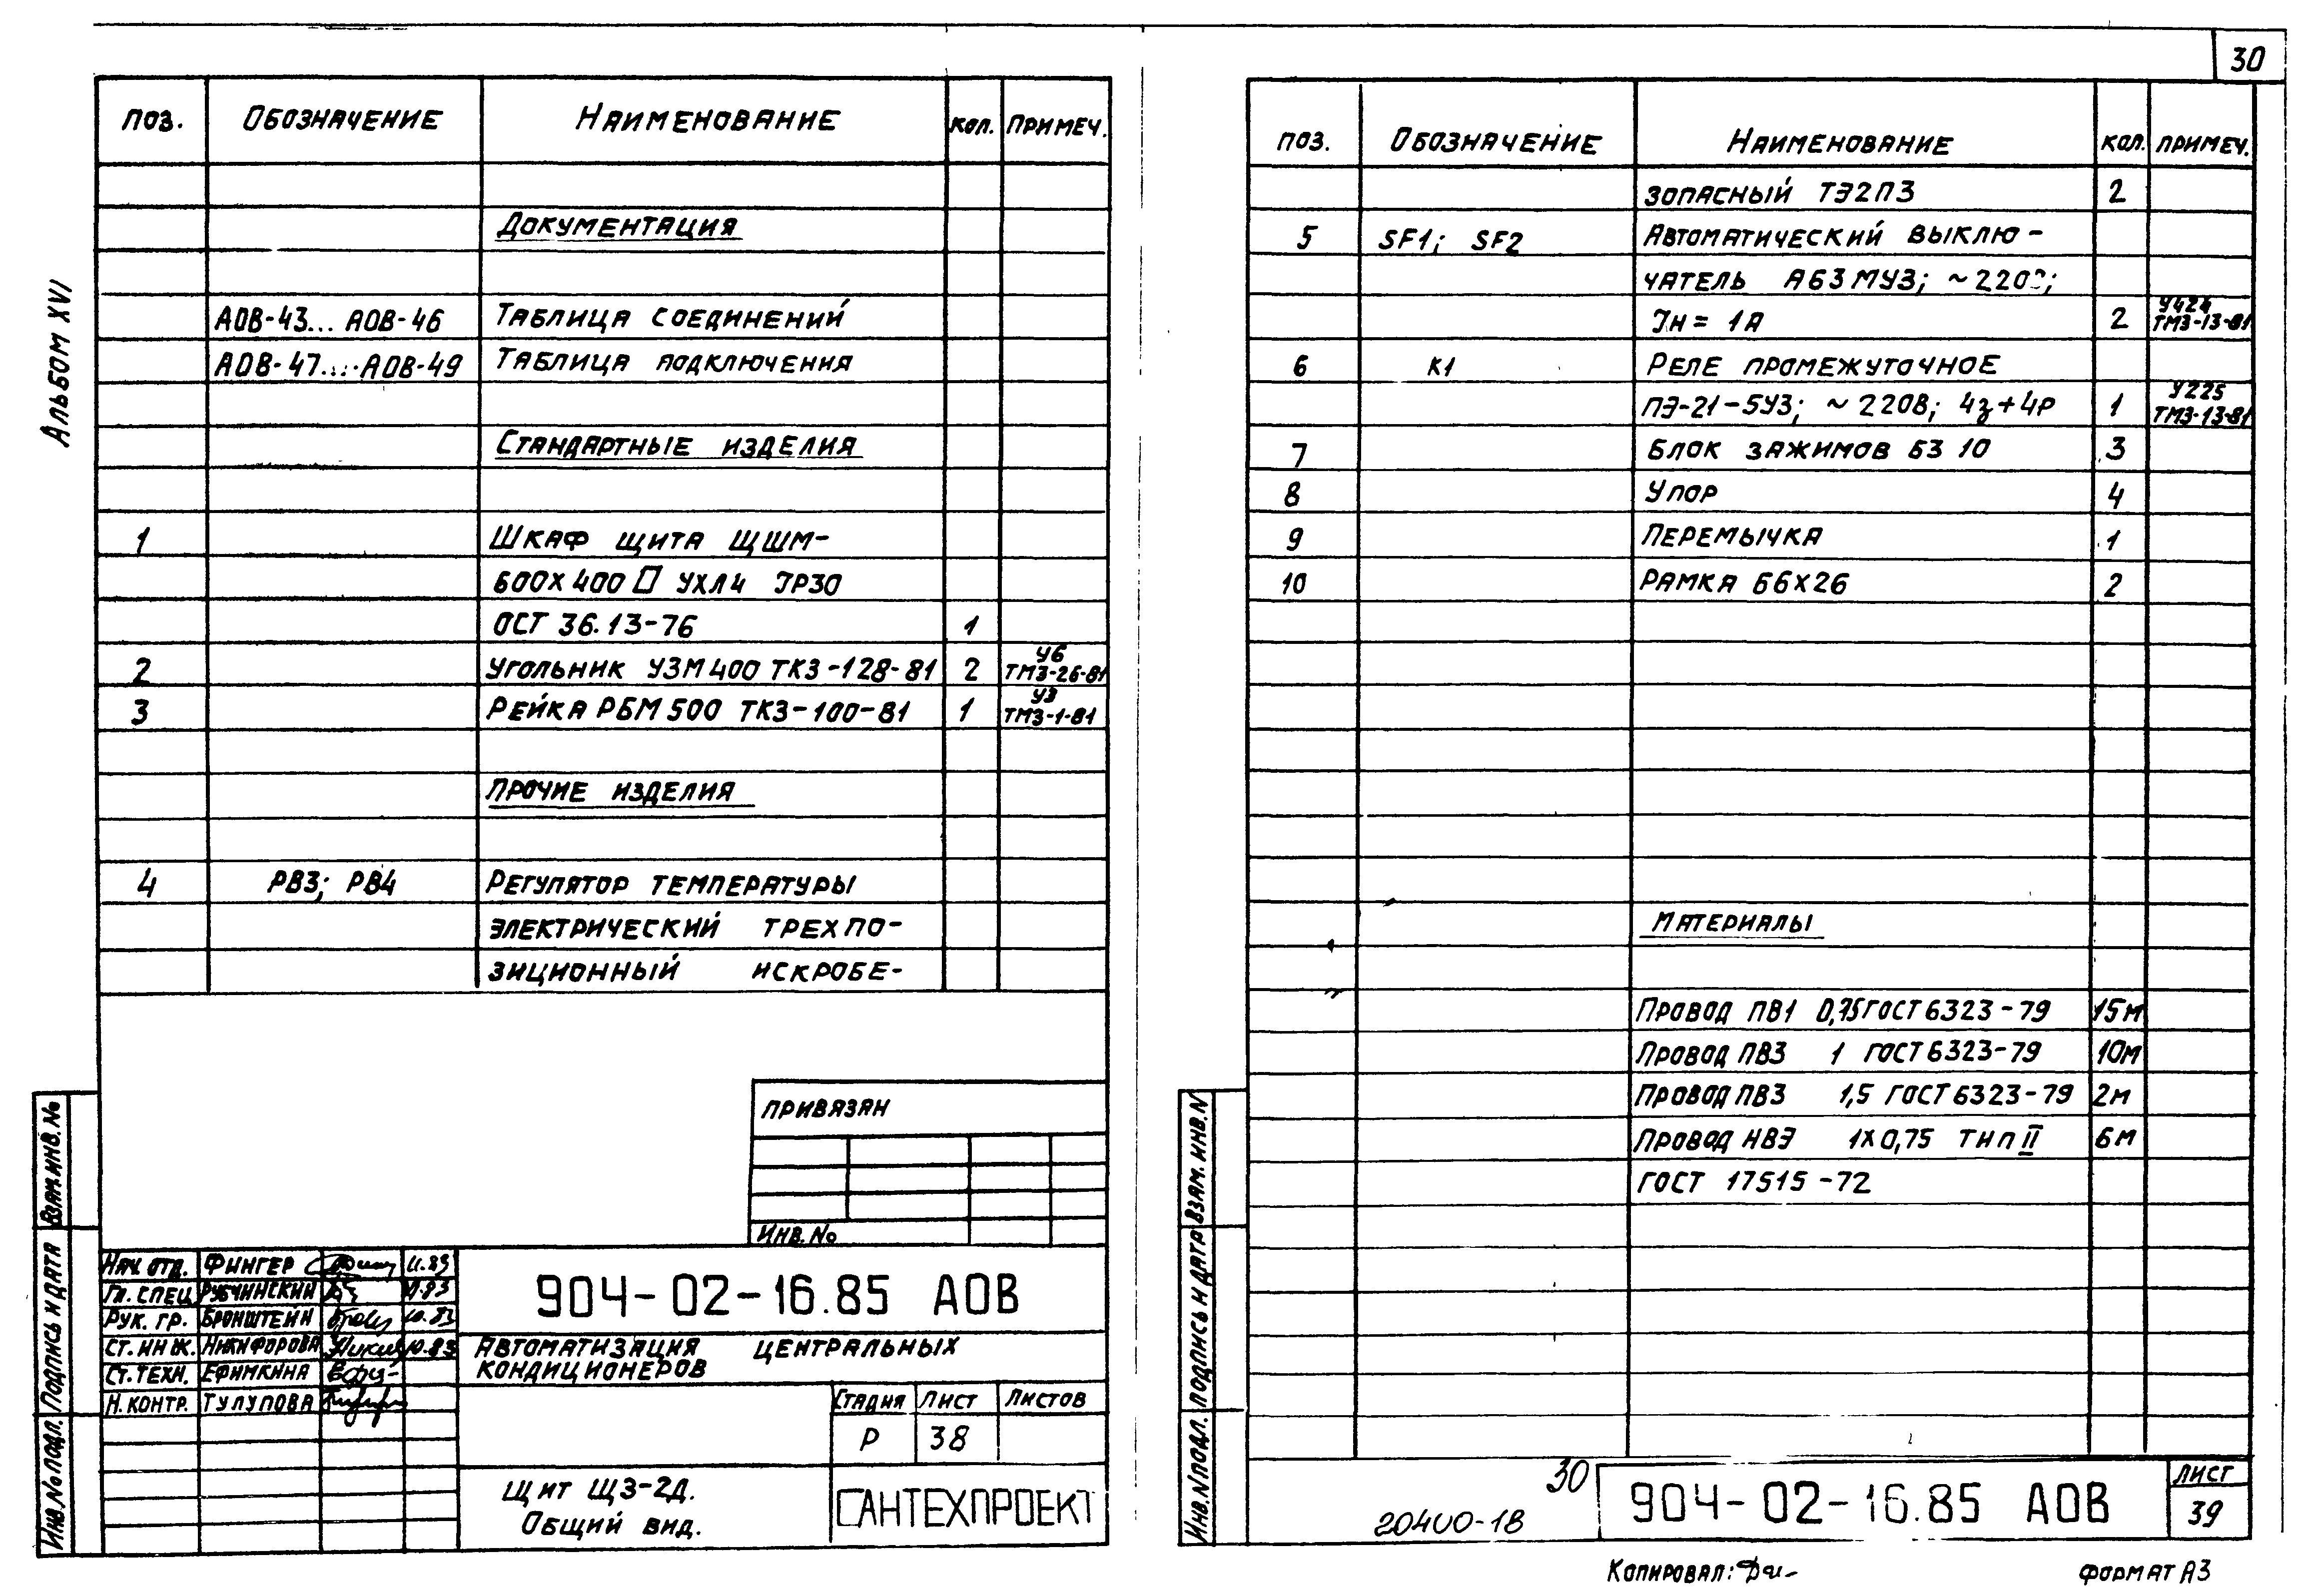 30
Альбом XVI
ПОЗ. ОБОЗНАЧЕНИЕ НАИМЕНОВАНИЕ КОЛ. ПРИМЕЧ.
ДОКУМЕНТАЦИЯ
АОВ-43... АОВ-46 ТАБЛИЦА СОЕДИНЕНИЙ
АОВ-47...АОВ-49 ТАБЛИЦА ПОДКЛЮЧЕНИЯ
СТАНДАРТНЫЕ ИЗДЕЛИЯ
1 ШКАФ ЩИТА ЩШМ-
600Х400 УХЛ4 IP30
ОСТ 36.13-76 1
2 УГОЛЬНИК УЗМ400 ТКЗ-128-81 2 У6 ТМЗ-26-81
3 РЕЙКА РБМ500 ТКЗ-100-81 1 У3 ТМЗ-1-81
ПРОЧИЕ ИЗДЕЛИЯ
4 РВ3; РВ4 РЕГУЛЯТОР ТЕМПЕРАТУРЫ
ЭЛЕКТРИЧЕСКИЙ ТРЕХПО-
ЗИЦИОННЫЙ ИСКРОБЕ-
ПРИВЯЗАН
ИНВ. №
НАЧ. ОТД. ФИНГЕР 11.83
ГЛ. СПЕЦ РУБЧИНСКИЙ 11.83
РУК. ГР. БРОНШТЕЙН 10.83
СТ. ИНЖ. НИКИФОРОВА 10.83
СТ. ТЕХН. ЕФИМКИНА
Н. КОНТР. ТУЛУПОВА
904-02-16.85 АОВ
АВТОМАТИЗАЦИЯ ЦЕНТРАЛЬНЫХ
КОНДИЦИОНЕРОВ
СТАДИЯ ЛИСТ ЛИСТОВ
Р 38
ЩИТ ЩЗ-2Д.
ОБЩИЙ ВИД.
САНТЕХПРОЕКТ
ИНВ. № ПОДЛ. ПОДПИСЬ И ДАТА ВЗАМ. ИНВ. №
ПОЗ. ОБОЗНАЧЕНИЕ НАИМЕНОВАНИЕ КОЛ. ПРИМЕЧ.
ЗОПАСНЫЙ ТЭ2П3 2
5 SF1; SF2 АВТОМАТИЧЕСКИЙ ВЫКЛЮ-
ЧАТЕЛЬ А63МУ3; ~220В;
Iн = 1А 2 У424 ТМЗ-13-81
6 К1 РЕЛЕ ПРОМЕЖУТОЧНОЕ
ПЭ-21-5У3; ~220В; 4з+4Р 1 У225 ТМЗ-13-81
7 БЛОК ЗАЖИМОВ БЗ 10 3
8 УПОР 4
9 ПЕРЕМЫЧКА 1
10 РАМКА 66Х26 2
МАТЕРИАЛЫ
ПРОВОД ПВ1 0,75 ГОСТ 6323-79 15м
ПРОВОД ПВ3 1 ГОСТ 6323-79 10м
ПРОВОД ПВ3 1,5 ГОСТ 6323-79 2м
ПРОВОД НВЭ 1Х0,75 ТИП II 6м
ГОСТ 17515-72
ИНВ. N ПОДЛ. ПОДПИСЬ И ДАТА ВЗАМ. ИНВ. N
30
20400-18
904-02-16.85 АОВ
ЛИСТ
39
КОПИРОВАЛ:
ФОРМАТ А3